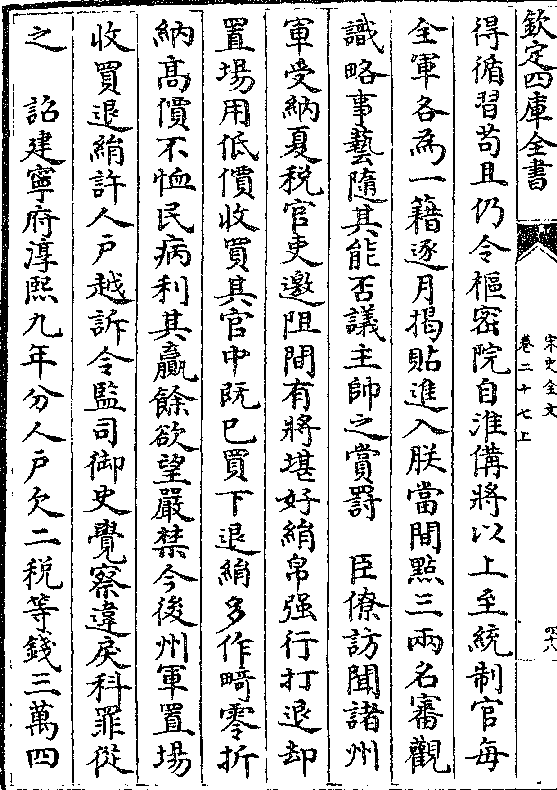 欽定四庫全書
宋史全文
卷二十七上
四八
得循習苟且仍令樞密院自淮備將以上至統制官每
全軍各為一籍逐月揭貼進入朕當間點三兩名審觀
識略事藝隨其能否議主帥之賞罰　臣僚訪聞諸州
軍受納夏稅官吏邀阻間有將堪好絹帛强行打退却
置場用低價收買其官中既已買下退絹多作畸零折
納高價不恤民病利其贏餘欲望嚴禁今後州軍置場
收買退絹許人戶越訴令監司御史覺察違戾科罪從
之　詔建寧府淳熙九年分人戶欠二稅等錢三萬四